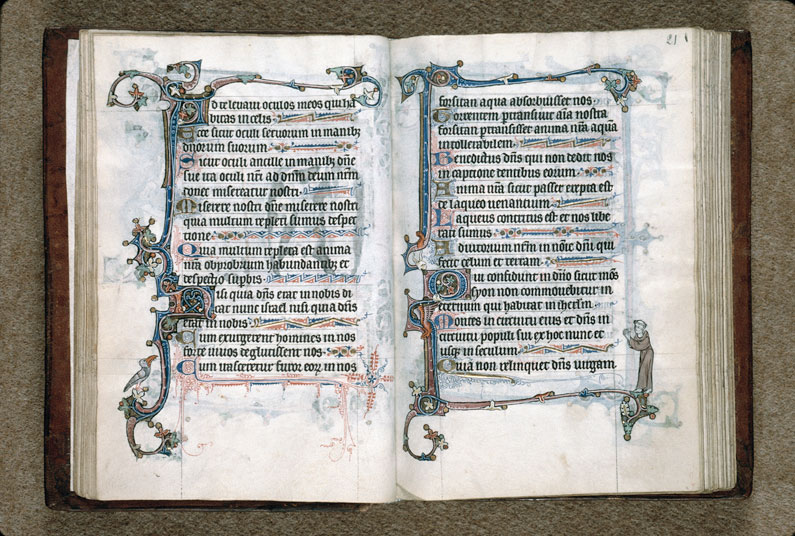 d te levavi oculos meos qui ha
bitas in celis
Ecce sicut oculi servorum in manibz
dnorum suorum
Sicut oculi ancille in manibz dne
sue ita oculi nri ad dnm deum nrm
donec misereatur nostri
Miserere nostri dne miserere nostri
quia multum repleti sumus despec
tione
Quia multum repleta est anima
nra obprobrium habundantibz et
despectio supbis
Nisi quia dns erat in nobis di
cat nunc israel nisi quia dns
erat in nobis
Cum exurgerent homines in nos
forte vivos deglutissent nos
Cum irasceretur furor eorz in nos
211
forsitan aqua absorbuisset nos
Torrentem ptransivit aia nostra
forsitan ptransisset anima nra aqua
intollerabilem
Benedictus dns qui non dedit nos
in captione dentibus eorum
Anima nra sicut passer erepta est
de laqueo venantium
Laqueus contritus est et nos libe
rati sumus
Adiutorium nrm in noie dni qui
fecit celum et terram
Qui confidunt in dno sicut mos
syon non commovebitur in
eternum qui habitat in iherlm
Montes in circuitu eius et dns in
circuitu populi sui ex hoc nunc et
usqz in seculum
Quia non relinquet dns virgam